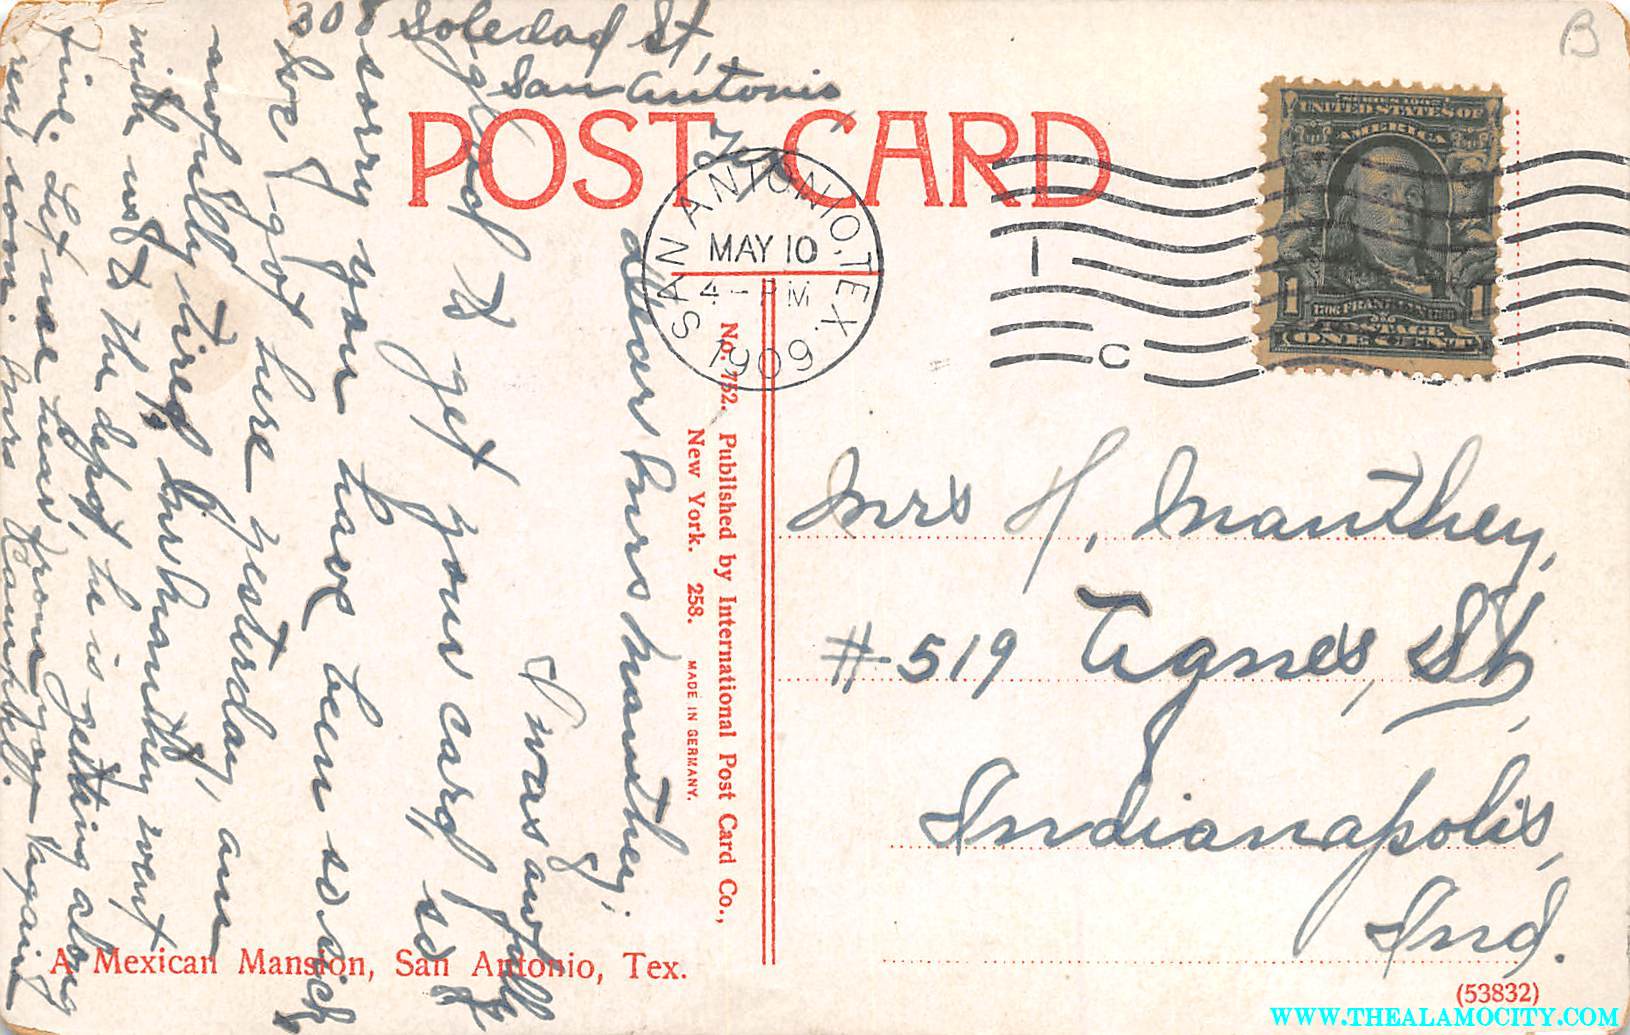 308 Soledad St,
San Antonio
Tex
Dear Mrs Manthey;
I was awfully
glad to get your card, so
sorry you have been so sick
we got here yesterday, am
awfully tired, Mr Manthey went
with us to the depot, he is getting along
fine. Let me hear from you again
real soon. Mrs
POST CARD
SAN ANTONIO, TEX.
MAY 10
4 - PM
1909
1
C
UNITED STATES OF
AMERICA
1
1
POSTAGE
ONE CENT
B
Mrs H. Manthey,
#519 Agnes, St,
Indianapolis,
Ind.
No. 752. Published by International Post Card Co.,
New York. 258. MADE IN GERMANY.
A Mexican Mansion, San Antonio, Tex.
(53832)
WWW.THEALAMOCITY.COM